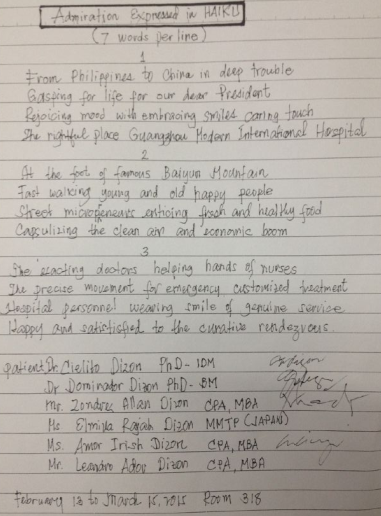 Admiration Expressed in HAIKU
(7 words per line)
1
From Philippines to China in deep trouble
Gasping for life for our dear President
Rejoicing mood with embracing smiles caring touch
The rightful place Guangzhou Modern International Hospital
2
At the foot of famous Baiyun Mountain
Fast walking young and old happy people
Street enticing fresh and healthy food
Capsulizing the clean air and economic boom
3
The exacting doctors helping hands of nurses
The precise movement for emergency customized treatment
Hospital personnel wearing smile of genuine service
Happy and satisfied to the curative rendezvous.
patient Dr. Cielito Dizon PhD - IDM
Dr Dominador Dizon PhD - BM
Mr. Zondrex Allan Dizon CPA, MBA
Ms Dizon MMTP (JAPAN)
Ms. Amor Irish Dizon CPA, MBA
Mr. Leandro Dizon CPA, MBA
February 13 to March 15, 2015 Room 318